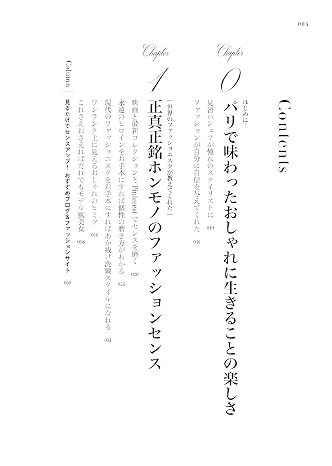 004
Contents
Chapter
0
はじめに
パリで味わったおしゃれに生きることの楽しさ
見習いシェフが憧れのスタイリストに 010
ファッションが自分に自信を与えてくれた 016
Chapter
1
世界のファッショニスタが教えてくれた
正真正銘ホンモノのファッションセンス
映画と最新コレクションとPinterestでセンスを磨く 020
永遠のヒロインをお手本にすれば個性の磨き方がわかる 024
現代のファッショニスタをお手本にすればあか抜け洗練スタイルになれる 034
ワンランク上に見えるおしゃれのヒミツ 056
これさえおさえればだれでもモデル風美女 058
Column
見るだけでセンスアップ！おすすめブログ＆ファッションサイト 060